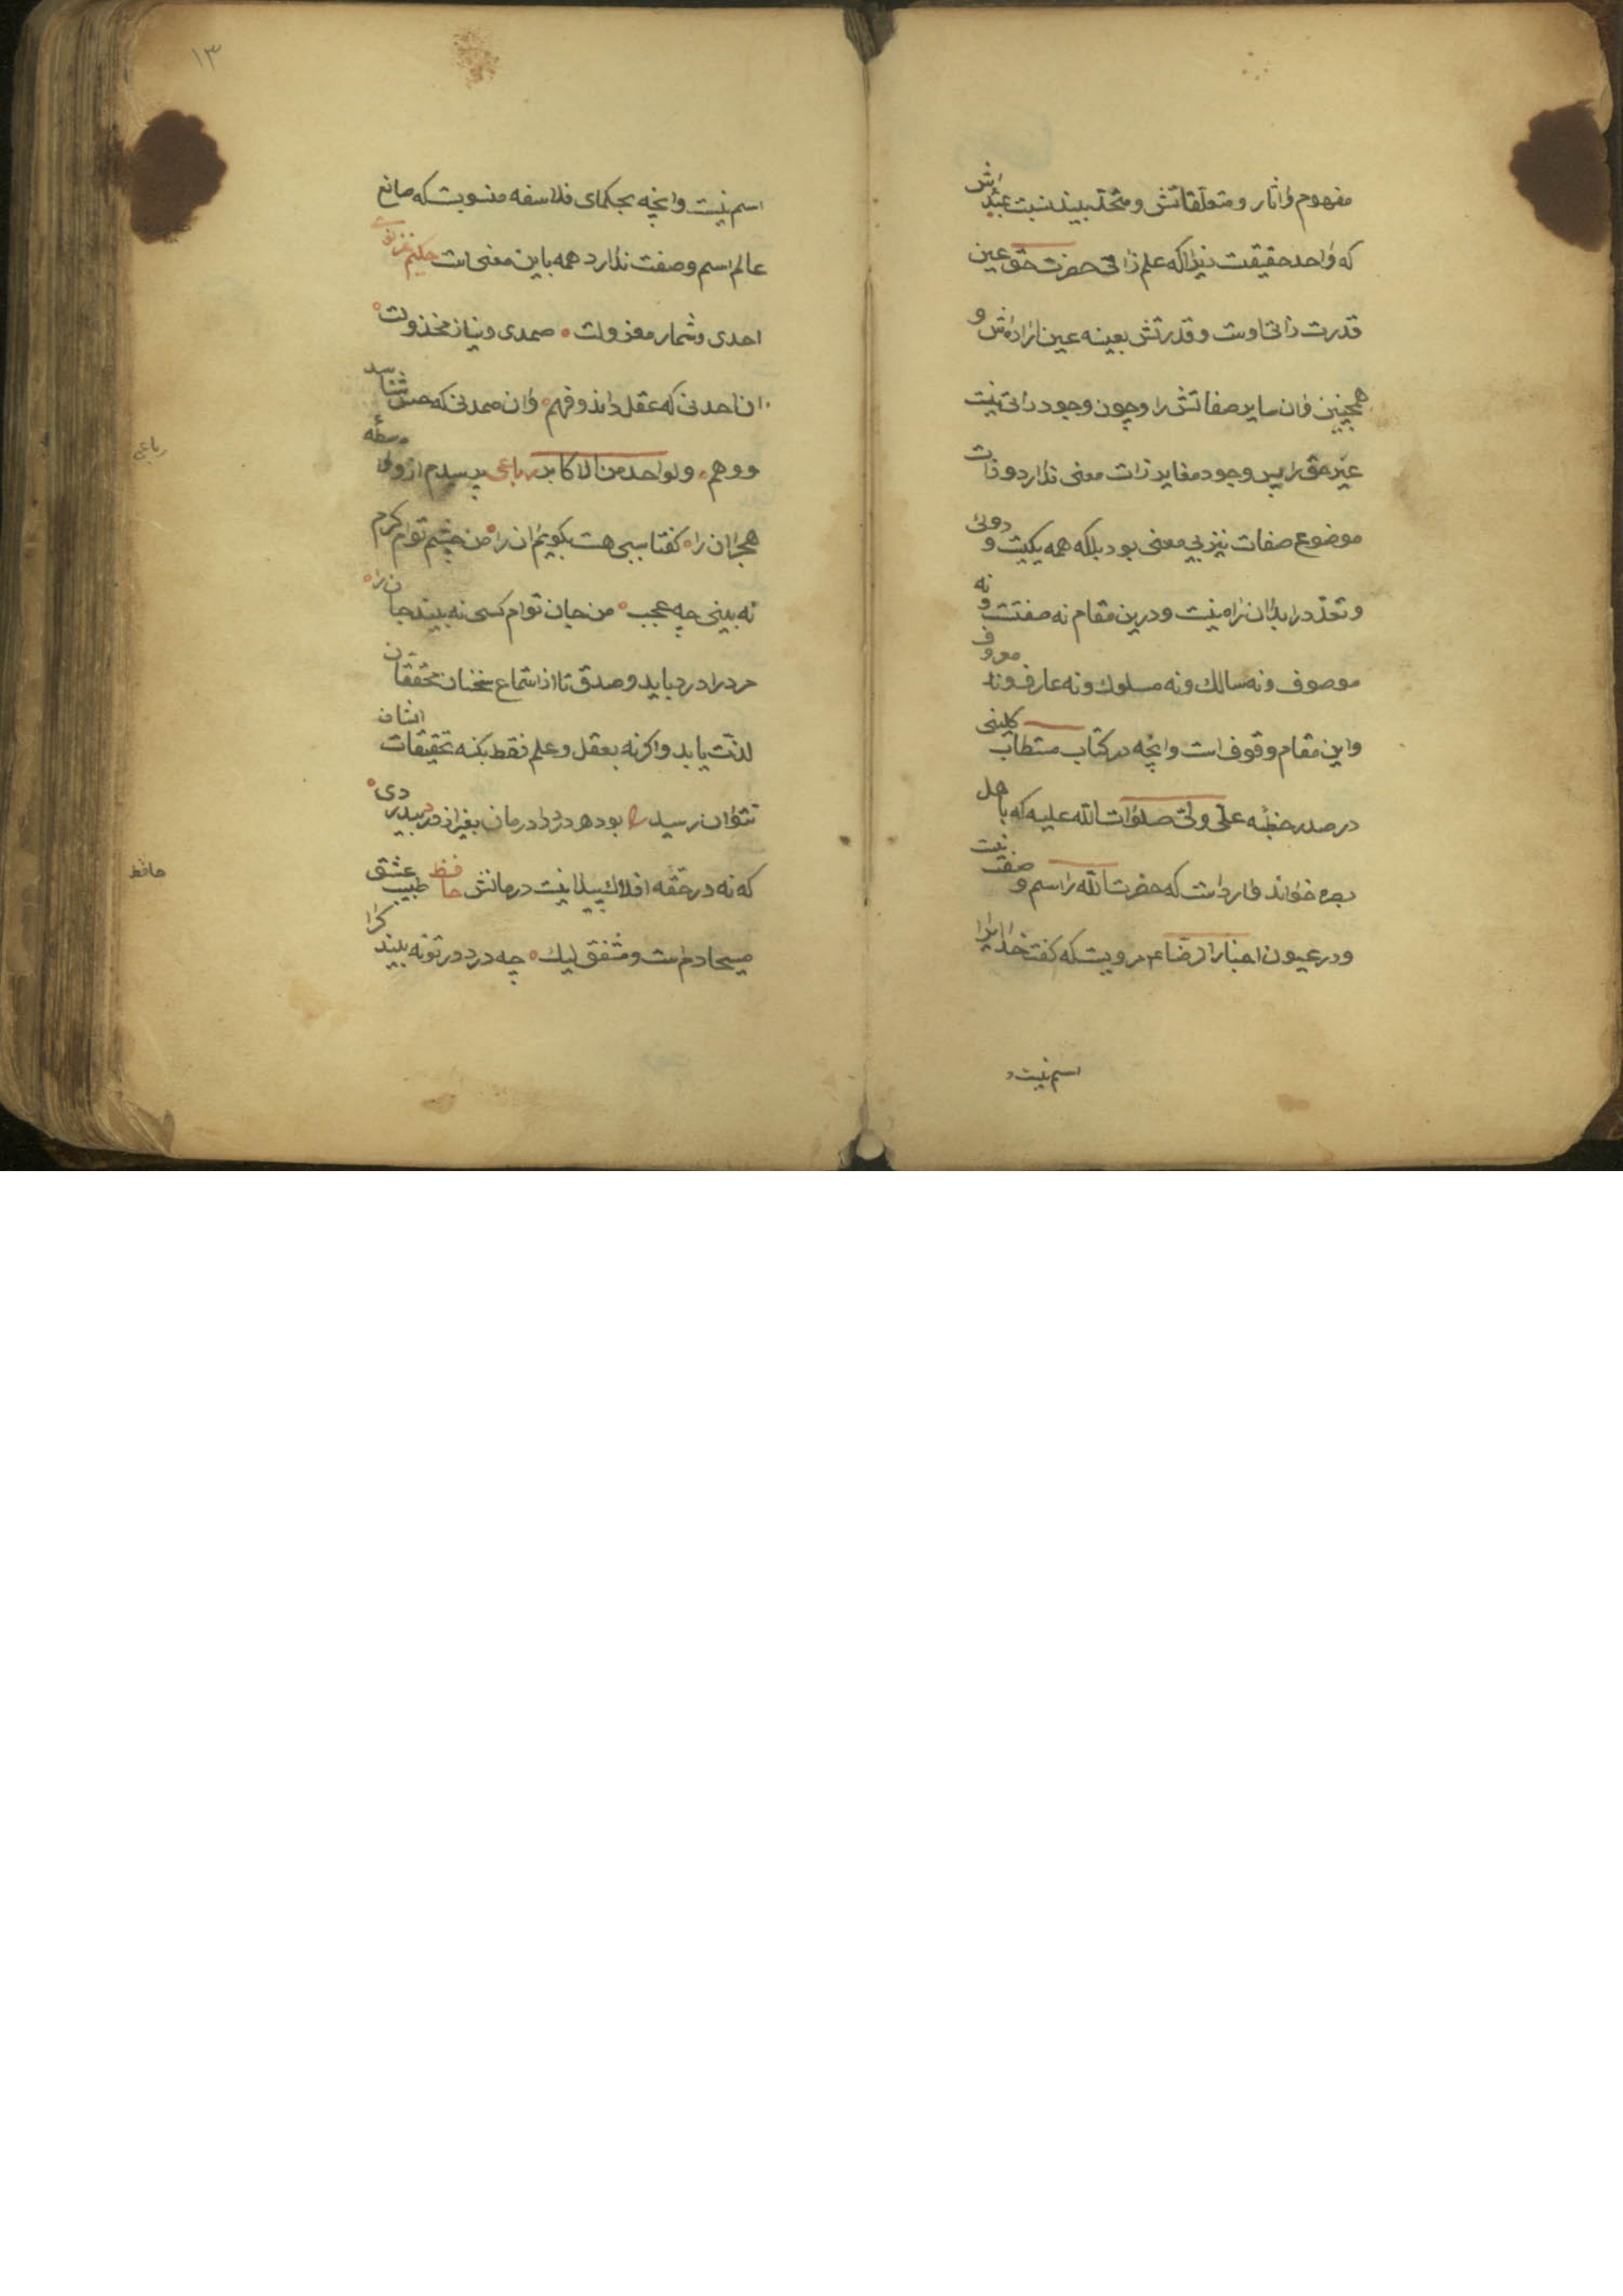 مفهوم و اثار و متعلقاتش و متحد بیند نسبت بذاتش
که واحد حقیقیست زیرا که علم ذاتی حضرت حق عین
قدرت ذاتی اوست و قدرتش بعینه عین اراده‌اش و
همچنین وان سایر صفاتش را و چون وجود ذاتی نیست
غیر حق را پس وجود مغایر ذات معنی ندارد و ذات
موضوع صفات نیز بی معنی بود بلکه همه یکیست و دوئی
و تعدد را بدان راه نیست و درین مقام نه صفتست و نه
موصوف و نه سالك و نه مسلوك و نه عارف و نه معروف
و این مقام وقوف است و انچه در کتاب مستطاب کلینی
در صدر خطبه علی ولی صلوات الله علیه که باهل
بصره خواند وارد است که حضرت الله را اسم و صفت نیست
و در عیون اخبار الرضا ع مرویست که گفت خدایرا
اسم نیست و
۱۳
اسم نیست و انچه بحکمای فلاسفه منسوبست که صانع
عالم اسم و صفت ندارد همه باین معنی است حکیم غزنوی
احدی و شمار معزولت صمدی و نیاز مخذولت
ان احد نی که عقل داند و فهم وان صمد نی که حس شناسد
و وهم و لواحد من الاکابر رباعی پرسیدم ازو واسطه
هجران را گفتا سببی هست بگویم ان را من چشم توام گرم
نه بینی چه عجب من جان توام کسی نه بیند جان را
مرد را درد باید و صدق تا از استماع سخنان محققان
لذت یابد و اگرنه بعقل و علم فقط بکنه تحقیقات ایشان
نتوان رسید بود هر درد را درمان بغیر از درد بیدردی
که نه در حقه افلاك پیدا نیست درمانش حافظ طبیب عشق
مسیحا دم است و مشفق لیك چه درد در تو نه بیند کرا
رباعی
حافظ